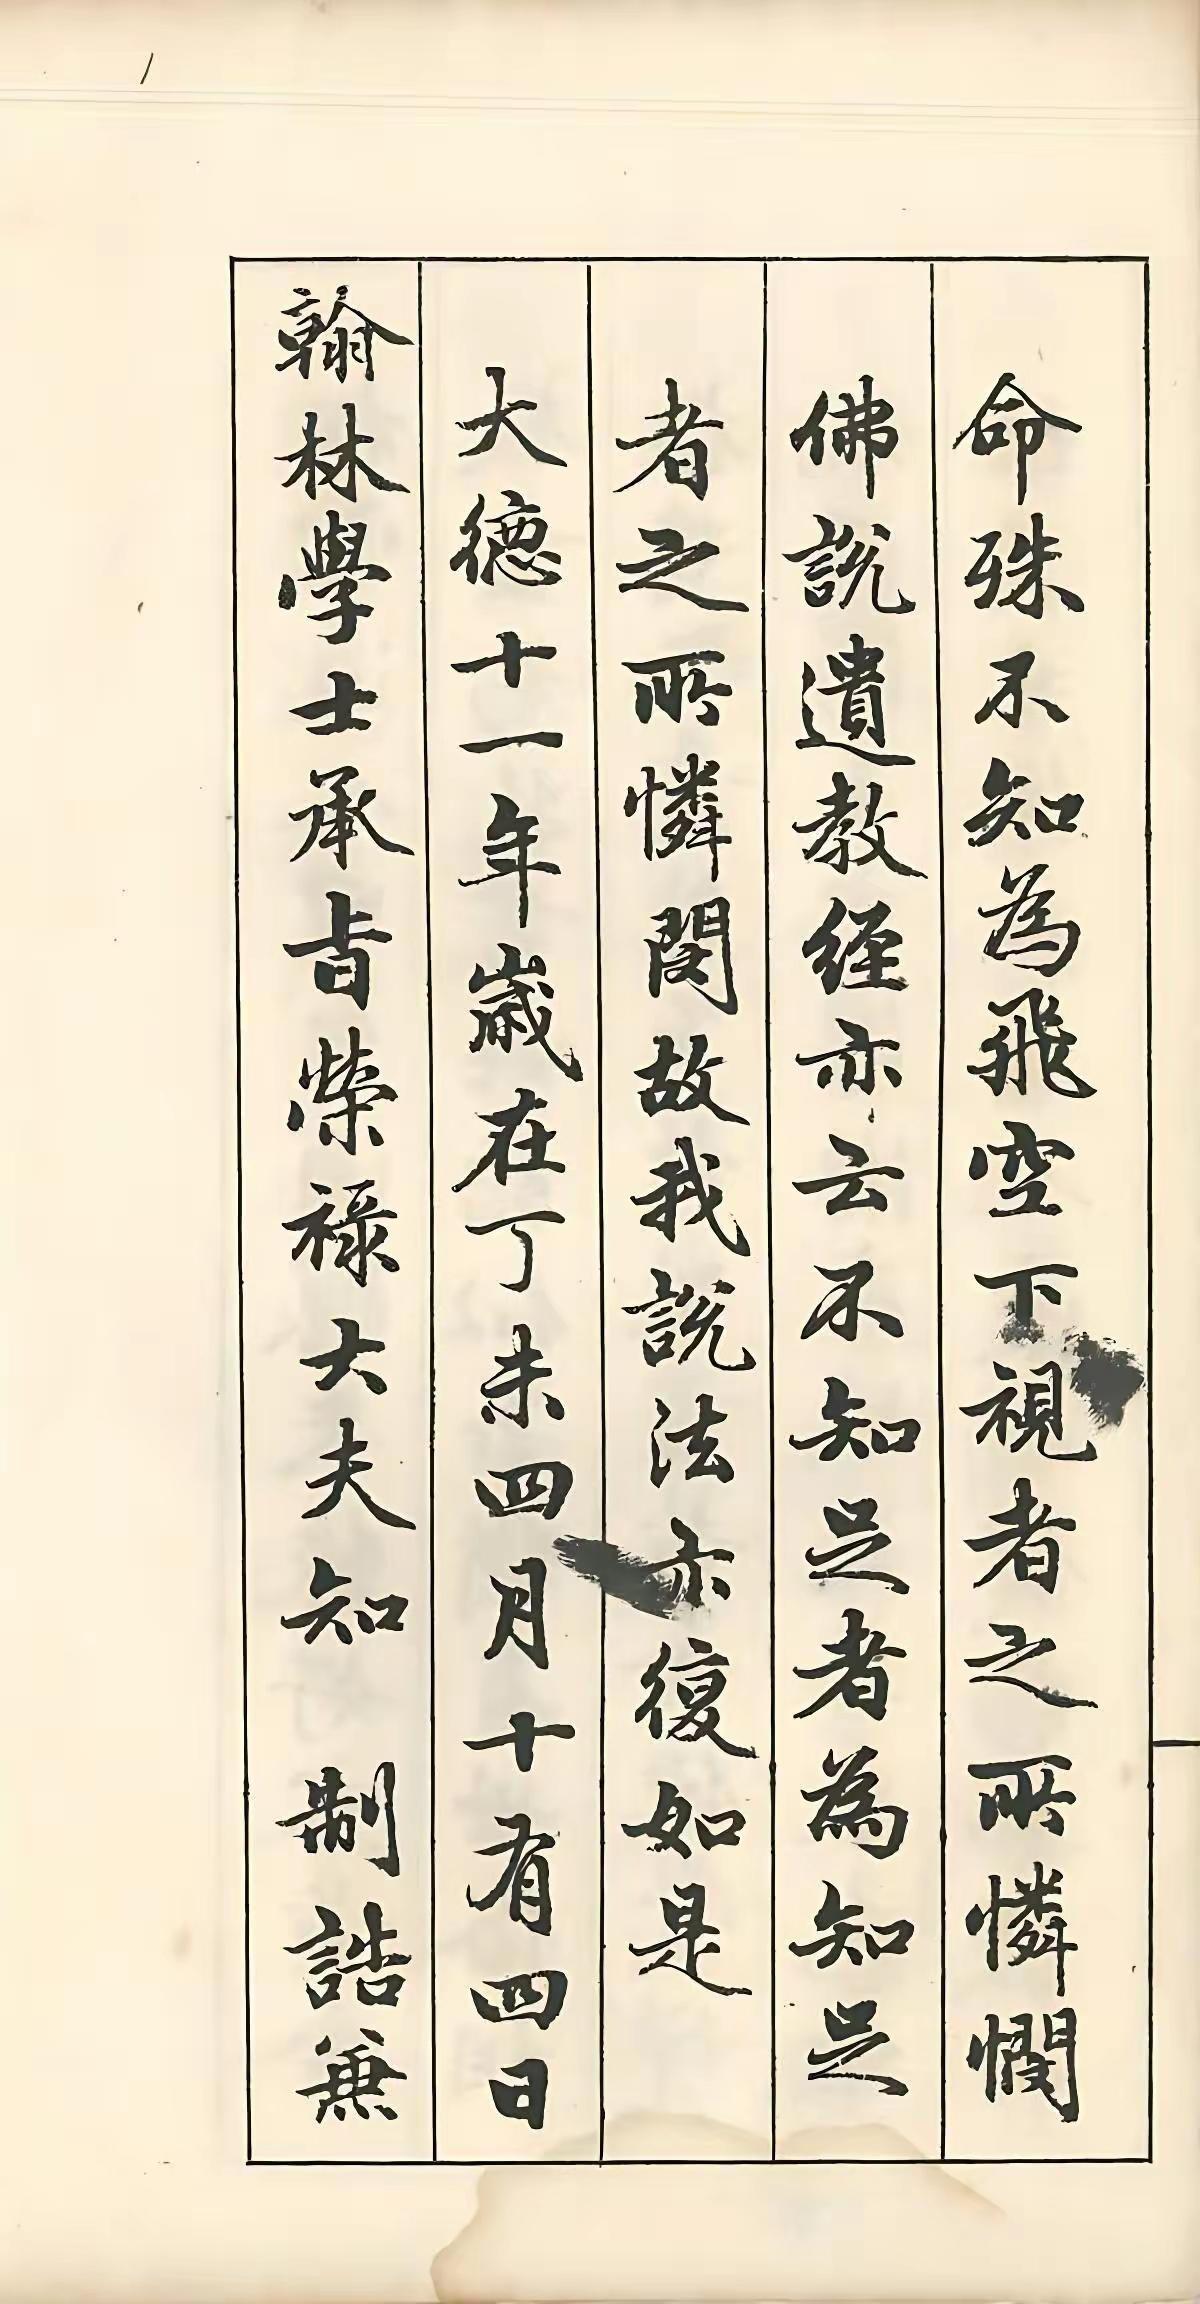 命殊不知為飛空下視者之所憐憫
佛說遺教經亦云不知足者為知足
者之所憐閔故我說法亦復如是
大德十一年歲在丁未四月十有四日
翰林學士承旨榮祿大夫知 制誥兼